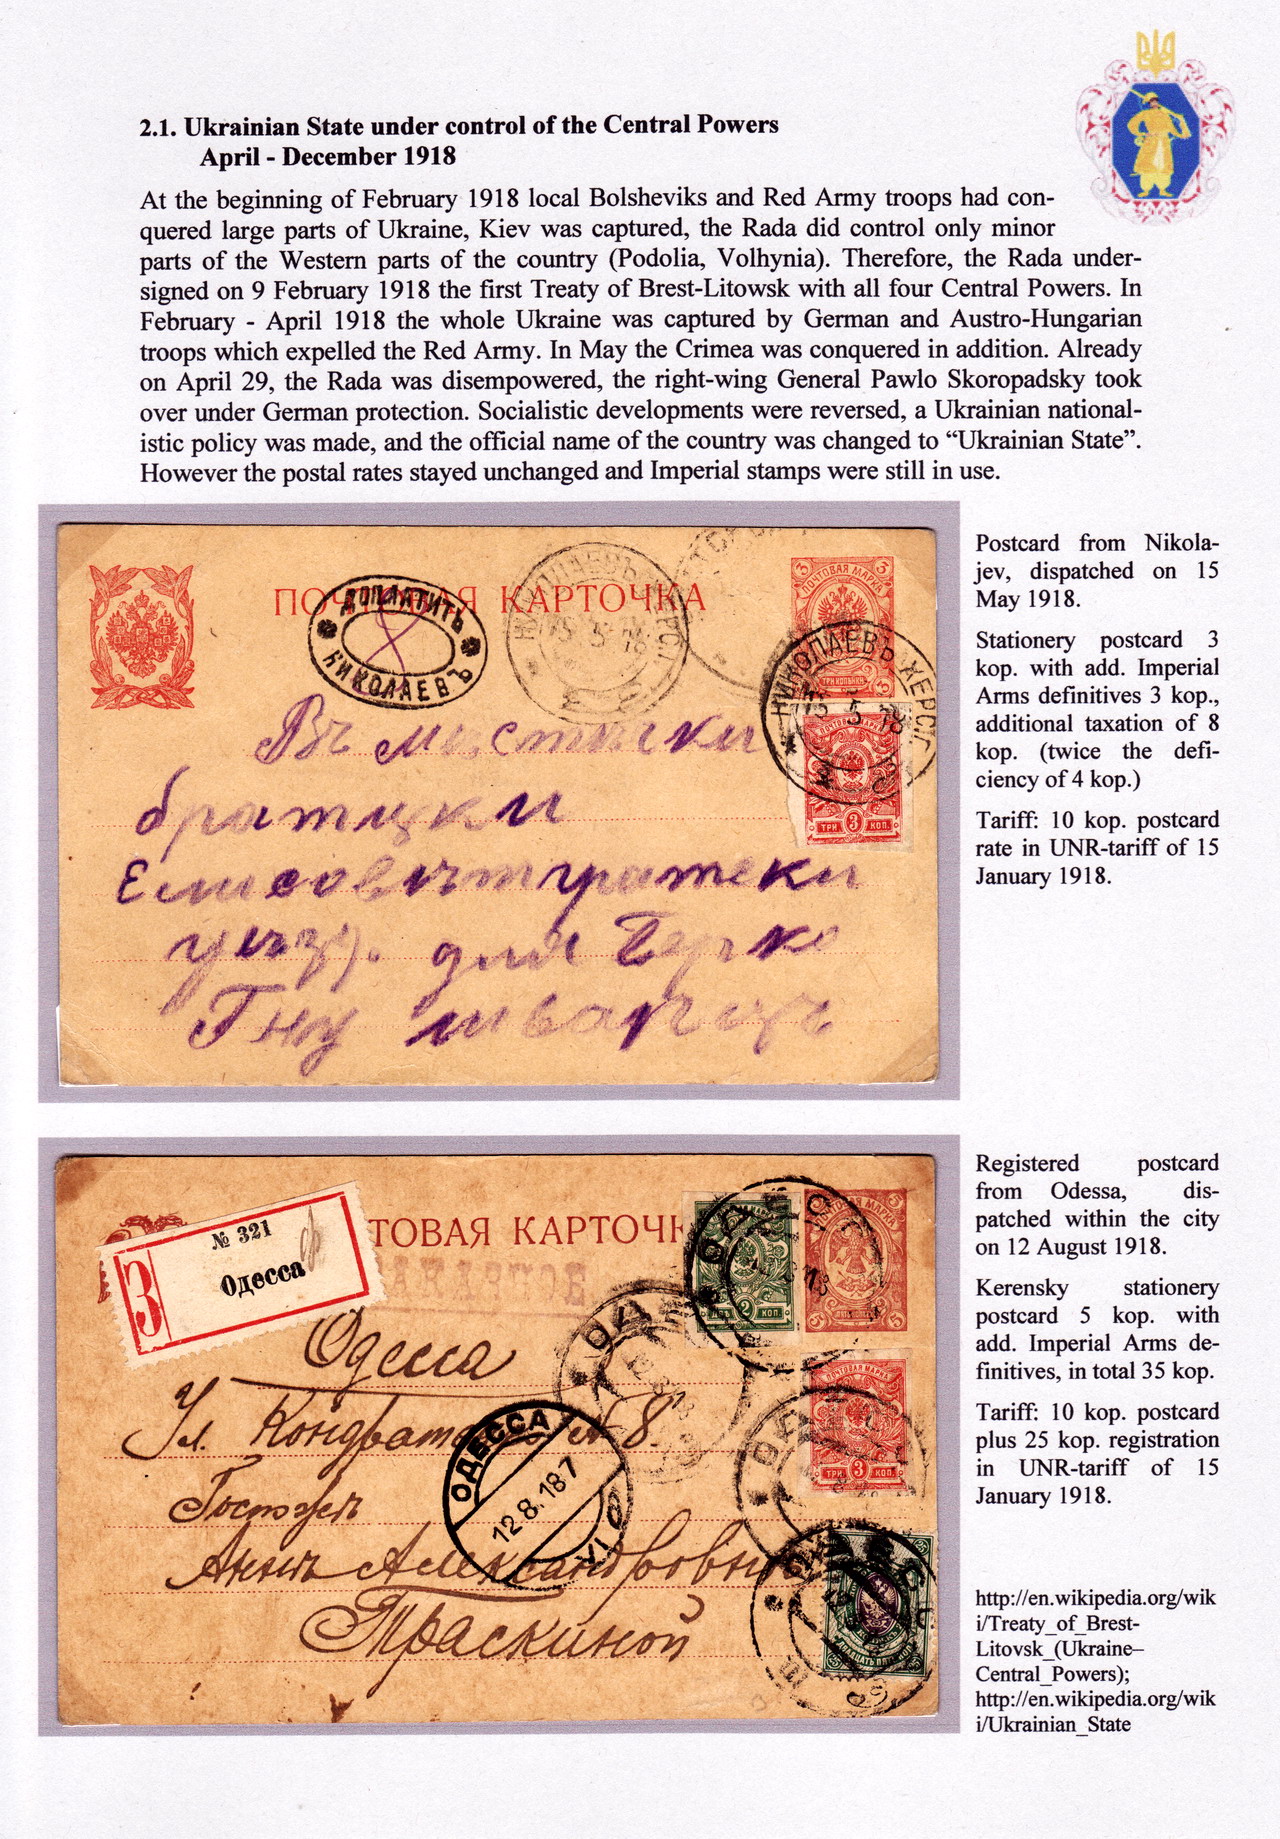 2.1. Ukrainian State under control of the Central Powers
April - December 1918
At the beginning of February 1918 local Bolsheviks and Red Army troops had con-
quered large parts of Ukraine, Kiev was captured, the Rada did control only minor
parts of the Western parts of the country (Podolia, Volhynia). Therefore, the Rada under-
signed on 9 February 1918 the first Treaty of Brest-Litowsk with all four Central Powers. In
February - April 1918 the whole Ukraine was captured by German and Austro-Hungarian
troops which expelled the Red Army. In May the Crimea was conquered in addition. Already
on April 29, the Rada was disempowered, the right-wing General Pawlo Skoropadsky took
over under German protection. Socialistic developments were reversed, a Ukrainian national-
istic policy was made, and the official name of the country was changed to “Ukrainian State”.
However the postal rates stayed unchanged and Imperial stamps were still in use.
ПОЧТОВАЯ КАРТОЧКА
ДОПЛАТИТЬ
НИКОЛАЕВЪ
НИКОЛАЕВЪ ХЕРС.Г
15 5 18
ПОЧТОВАЯ МАРКА
ТРИ КОПѢЙКИ
НИКОЛАЕВЪ ХЕРС.Г
15 5 18
ТРИ 3 КОП.
Въ
братцки
для
Postcard from Nikola-
jev, dispatched on 15
May 1918.
Stationery postcard 3
kop. with add. Imperial
Arms definitives 3 kop.,
additional taxation of 8
kop. (twice the defi-
ciency of 4 kop.)
Tariff: 10 kop. postcard
rate in UNR-tariff of 15
January 1918.
№ 321
Одесса
З
ТОВАЯ КАРТОЧК
ПОЧТОВАЯ МАРКА
2 КОП.
ТРИ 3 КОП.
Одесса
Ул. № 8.
ОДЕССА
12.8.18 7
Госпожѣ
Аннѣ Александровнѣ
Траскиной
Registered postcard
from Odessa, dis-
patched within the city
on 12 August 1918.
Kerensky stationery
postcard 5 kop. with
add. Imperial Arms de-
finitives, in total 35 kop.
Tariff: 10 kop. postcard
plus 25 kop. registration
in UNR-tariff of 15
January 1918.
http://en.wikipedia.org/wik
i/Treaty_of_Brest-
Litovsk_(Ukraine–
Central_Powers);
http://en.wikipedia.org/wik
i/Ukrainian_State